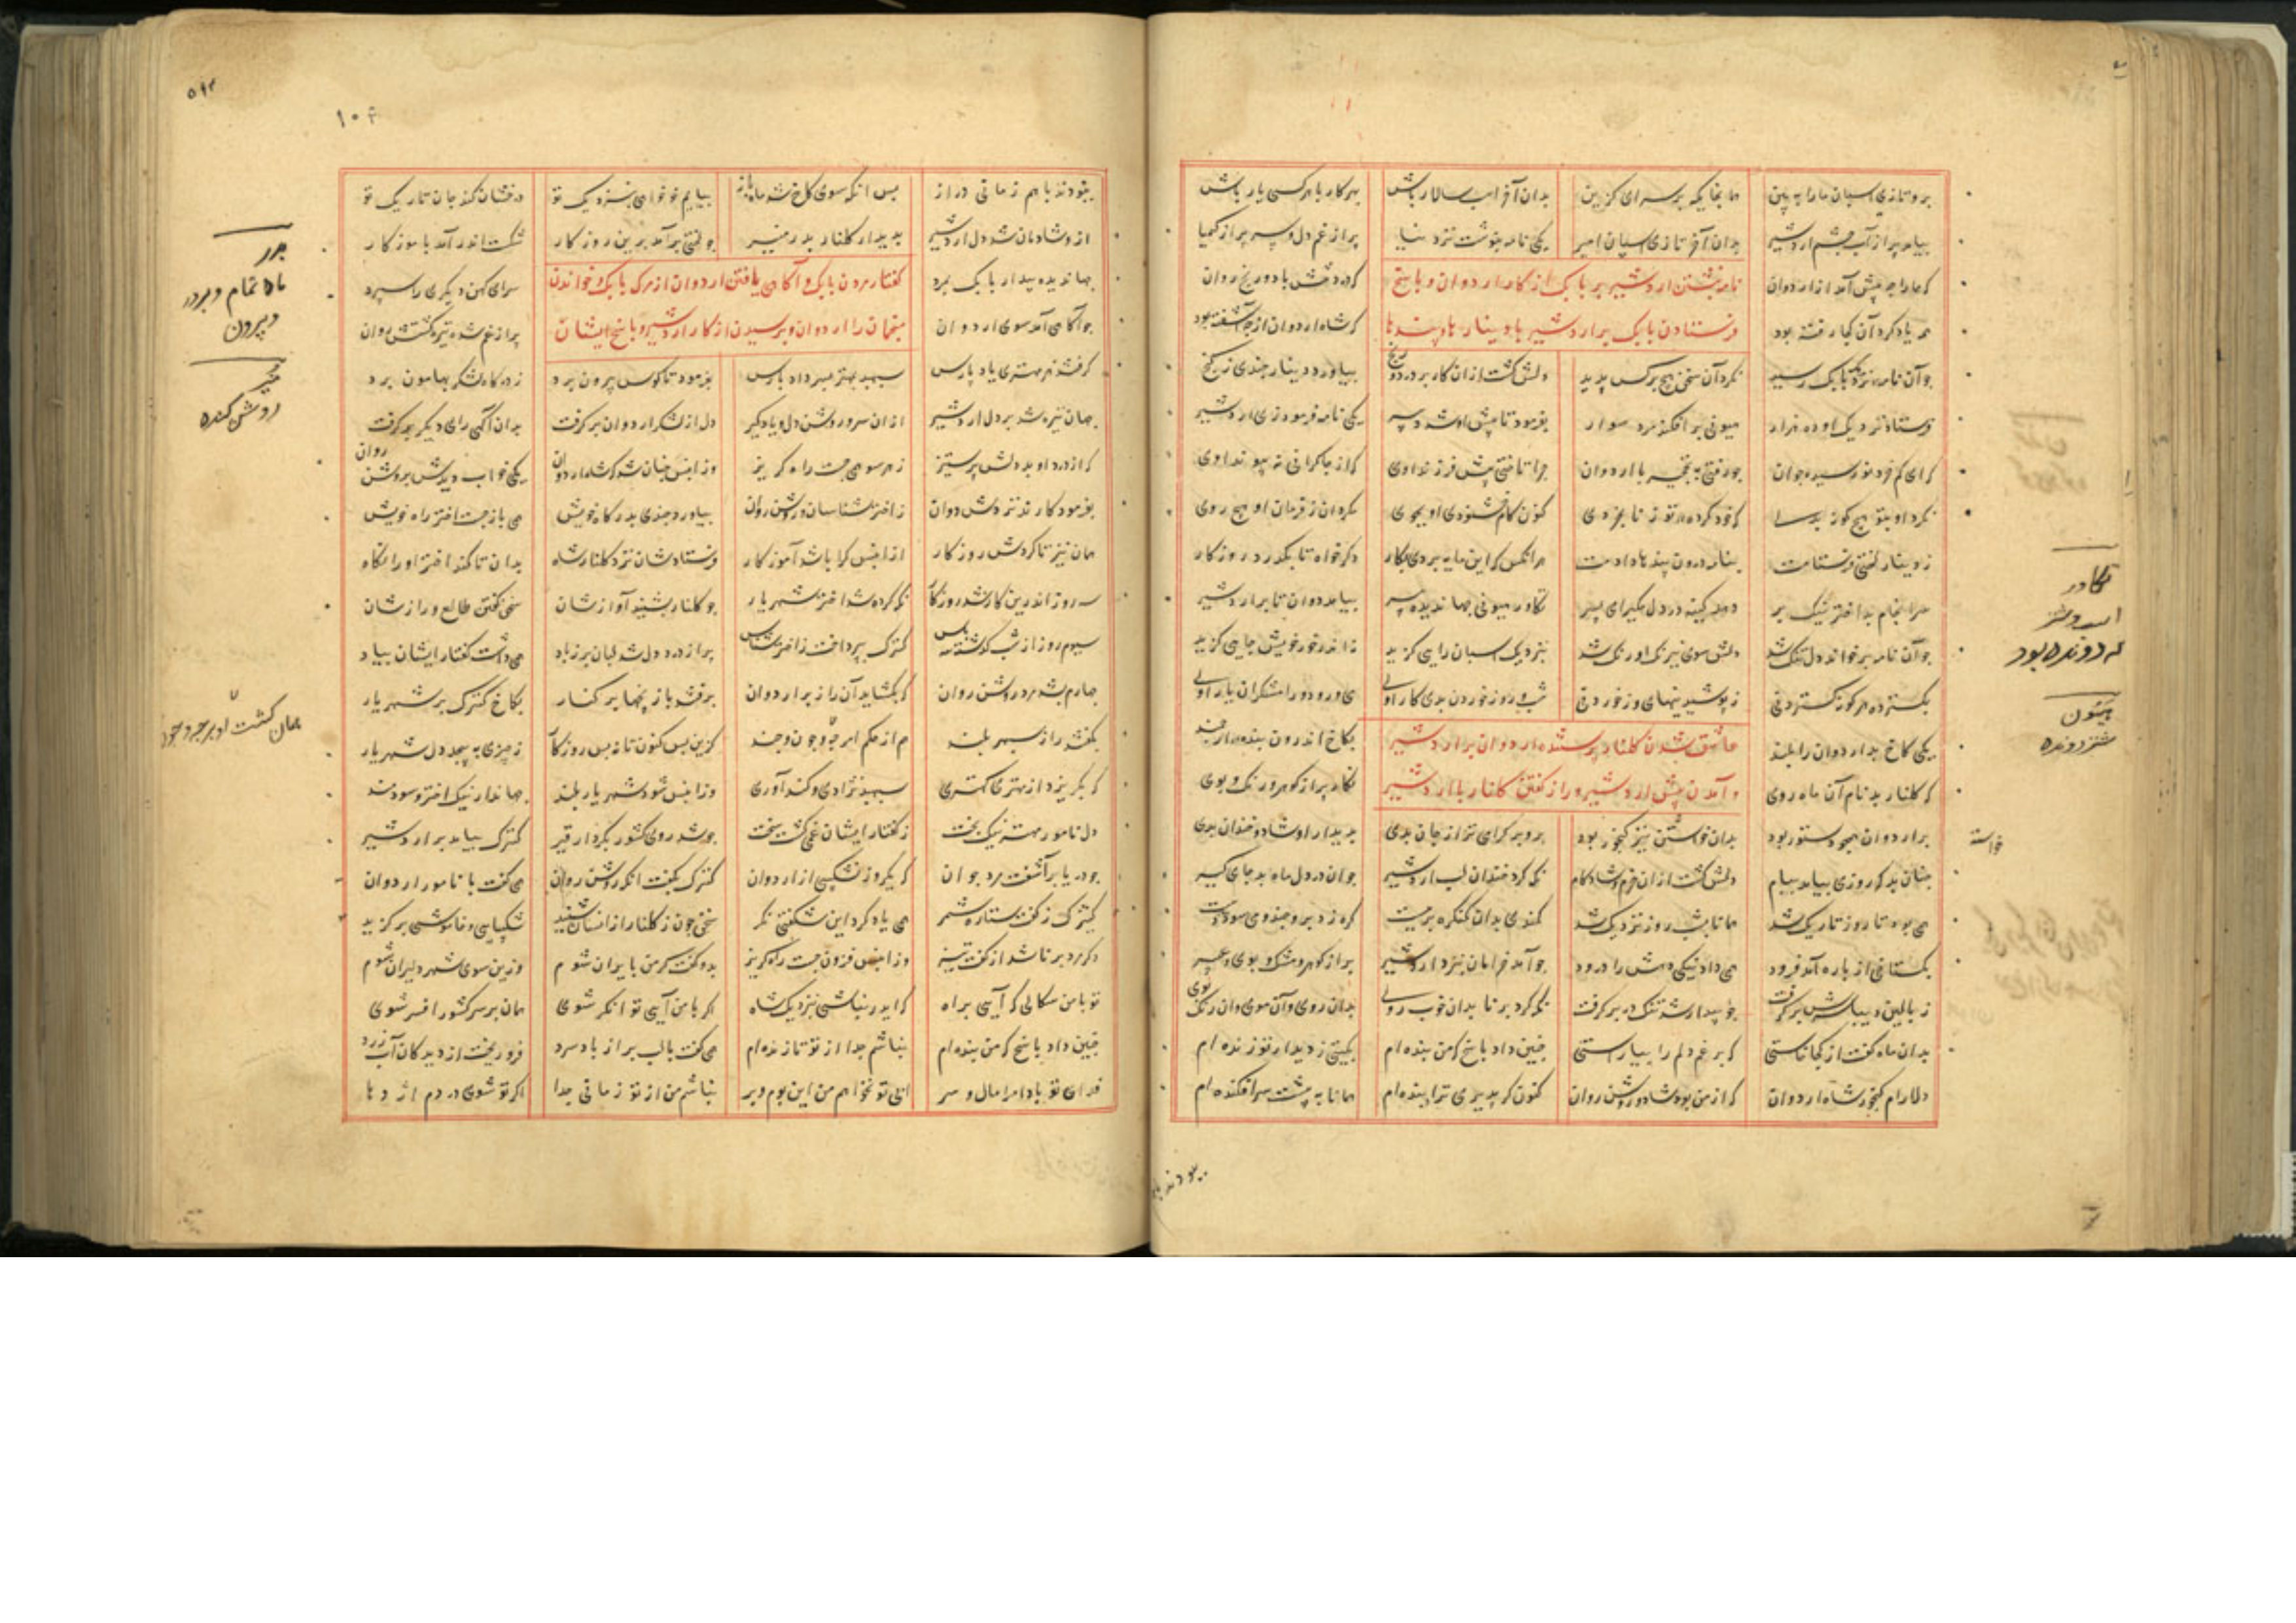 برو تازی اسپان ما را ببین هم آنجایگه بر سرای گزین بدان آخر اسب سالار باش بهر کار با هر کسی یار باش
بیامد پر از آب چشم اردشیر بدان آخر تازی اسپان امیر یکی نامه بنوشت نزد نیا پر از غم دل و سر پر از کیمیا
که ما را چه پیش آمد از اردوان که درد تنش باد و رنج روان
نامه نبشتن اردشیر بر بابک از کار اردوان و پاسخ
همه یاد کرد آن کجا رفته بود که شاه اردوان از چه آشفته بود
فرستادن بابک بر اردشیر با دینارها و پندها
چو آن نامه نزدیک بابک رسید نکرد آن سخن هیچ بر کس پدید دلش گشت از آن کار پر درد و رنج بیاورد دینار چندی ز گنج
فرستاد نزدیک او ده هزار هیونی برافکند مرد سوار بفرمود تا پیش او شد دبیر یکی نامه فرمود زی اردشیر
که ای کم خرد نورسیده جوان چو رفتی به نخجیر با اردوان چرا تاختی پیش فرزند اوی که از چاکرانی نه پیوند اوی
نکرد او بتو هیچ گونه بدی که خود کرده‌ای تو ز نابخردی کنون کام و خشنودی او بجوی مگردان ز فرمان او هیچ روی
ز دینار لختی فرستادمت بنامه درون پندها دادمت هر آنگه که این مایه بردی بکار دگر خواه تا بگذرد روزگار
بیامد دوان تا بر اردشیر تکاور هیونی جهاندیده پیر
چو آن نامه برخواند دل تنگ شد دلش سوی نیرنگ و اورنگ شد بنزدیک اسبان سرایی گزید نه اندر خور خویش جایی گزید
بگسترد هر گونه گستردنی ز پوشیدنیها و از خوردنی شب و روز خوردن بدی کار اوی می و رود و رامشگران یار اوی
یکی کاخ بد اردوان را بلند بکاخ اندرون بنده ارجمند
عاشق شدن گلنار پرستنده اردوان بر اردشیر
که گلنار بد نام آن ماه روی نگار پر از گوهر و رنگ و بوی
و آمدن پیش اردشیر و راز گفتن گلنار با اردشیر
بر اردوان همچو دستور بود بدان خواسته نیز گنجور بود برو بر گرامی‌تر از جان بدی بدیدار او شاد و خندان بدی
چنان بد که روزی بیامد ببام دلش گشت از آن خرم و شادکام نگه کرد خندان لب اردشیر جوان در دل ماه بد جای‌گیر
همی بود تا روز تاریک شد همانا بشب روز نزدیک شد کمندی بدان کنگره بر ببست گره زد برو چند و بسود دست
بگستاخی از باره آمد فرود همی داد نیکی دهش را درود چو آمد خرامان بنزد اردشیر پر از گوهر و مشک و بوی و عبیر
ز بالین دیبا سرش برگرفت چو بیدار شد تنگ در بر گرفت نگه کرد برنا بدان خوب روی بدان روی و آن موی و آن رنگ و بوی
بدان ماه گفت از کجا خاستی که بر غم دلم را بیاراستی چنین داد پاسخ که من بنده‌ام بگیتی ز دیدار تو زنده‌ام
دلارام گنجور شاه اردوان که از من بود شاد و روشن روان کنون گر پذیری ترا بنده‌ام همانا به پیشت سرافکنده‌ام
تکاور
اسب و شتر
که دونده بود
هیون
شتر دونده
خواسته
ببودند با
ببودند با هم زمانی دراز پس آنگه سوی کاخ شد ماه باز بیایم چو خواهی بنزدیک تو درفشان کنم جان تاریک تو
ازو شادمان شد دل اردشیر بدیدار گلنار بدر منیر چو لختی برآمد برین روزگار شکست اندر آمد بآموزگار
جهاندیده بیدار بابک بمرد سرای کهن دیگری را سپرد
گفتار مردن بابک و آگاهی یافتن اردوان از مرگ بابک و خواندن
چو آگاهی آمد سوی اردوان پر از غم شد و تیره گشتش روان
منجمان را اردوان و پرسیدن از کار اردشیر و پاسخ ایشان
گرفتند هر مهتری یاد پارس سپهبد بمهتر پسر داد پارس بفرمود تا کوس بیرون برد ز درگاه لشکر بهامون برد
جهان تیره شد بر دل اردشیر از آن سرور روشن دل و یادگیر دل از لشکر اردوان برگرفت بدان آگهی رای دیگر گرفت
که از درد او بد دلش پر ستیز ز هر سو همی جست راه گریز وز آنپس چنان شد که شاه اردوان یکی خواب دیدش بروشن روان
بفرمود کارند نزدش دوان ز اختر شناسان روشن روان بیاورد چندی بدرگاه خویش همی بازجست اختر و راه خویش
همان نیز تا گردش روزگار از آنپس کرا باشد آموزگار فرستادشان نزد گلنار شاه بدان تا کنند اختر او را نگاه
سه روز اندرین کار شد روزگار نگه کرده شد اختر شهریار چو گلنار بشنید آوازشان سخن گفتن طالع و رازشان
سیوم روز از شب گذشته سه پاس کنیزک بپرداخت ز اختر شناس پر از درد دل شد لبان پر ز باد همی داشت گفتار ایشان بیاد
چهارم بشد مرد روشن روان که بگشاید آن راز بر اردوان برفتند با زیجها بر کنار بکاخ کنیزک بر شهریار
بگفتند راز سپهر بلند هم از حکم او بر چه و چون و چند کزین پس کنون تا نه بس روزگار ز چیزی بپیچد دل شهریار
که بگریزد از مهتری کهتری سپهبد نژادی و کندآوری وز آنپس شود شهریار بلند جهاندار نیک اختر و سودمند
دل نامور مهتر نیک بخت ز گفتار ایشان غمی گشت سخت چو شد روی کشور بکردار قیر کنیزک بیامد بر اردشیر
چو دریا برآشفت مرد جوان که یک روز نشکیبی از اردوان کنیزک بگفت آنکه روشن روان همی گفت با نامور اردوان
کنیزک ز گفت ستاره شمر همی یاد کرد این شگفتی نگر سخن چون ز گلنار از انسان شنید شکیبایی و خامشی برگزید
دل مرد برنا شد از گفت تیز وز آنپس فزون جست راه گریز بدو گفت گر من بایران شوم وزین سوی شهر دلیران شوم
تو با من سگالی که آیی براه گر ایدر بباشی بنزدیک شاه اگر با من آیی توانگر شوی همان بر سر کشور افسر شوی
چنین داد پاسخ که من بنده‌ام نباشم جدا از تو تا زنده‌ام همی گفت با لب پر از باد سرد فرو ریخت از دیدگان آب زرد
فدای تو بادا مرا مال و سر ابی تو نخواهم من این بوم و بر نباشم من از تو زمانی جدا اگر تو شوی در دم اژدها
بدر
ماه تمام و بدر
و بیرون
منیر
روشن کننده